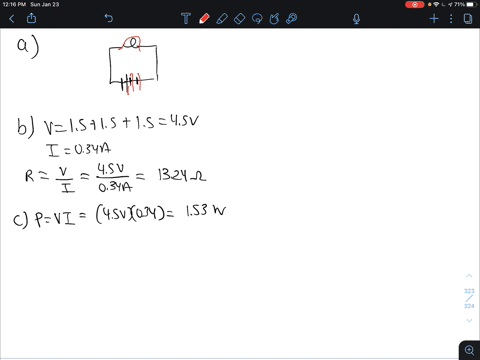 12:16 PM Sun Jan 23
71%
a)
b) V = 1.5 + 1.5 + 1.5 = 4.5V
I = 0.34A
R = V/I = 4.5V/0.34A = 13.24 Ω
c) P = VI = (4.5V)(0.34) = 1.53 W
323/324